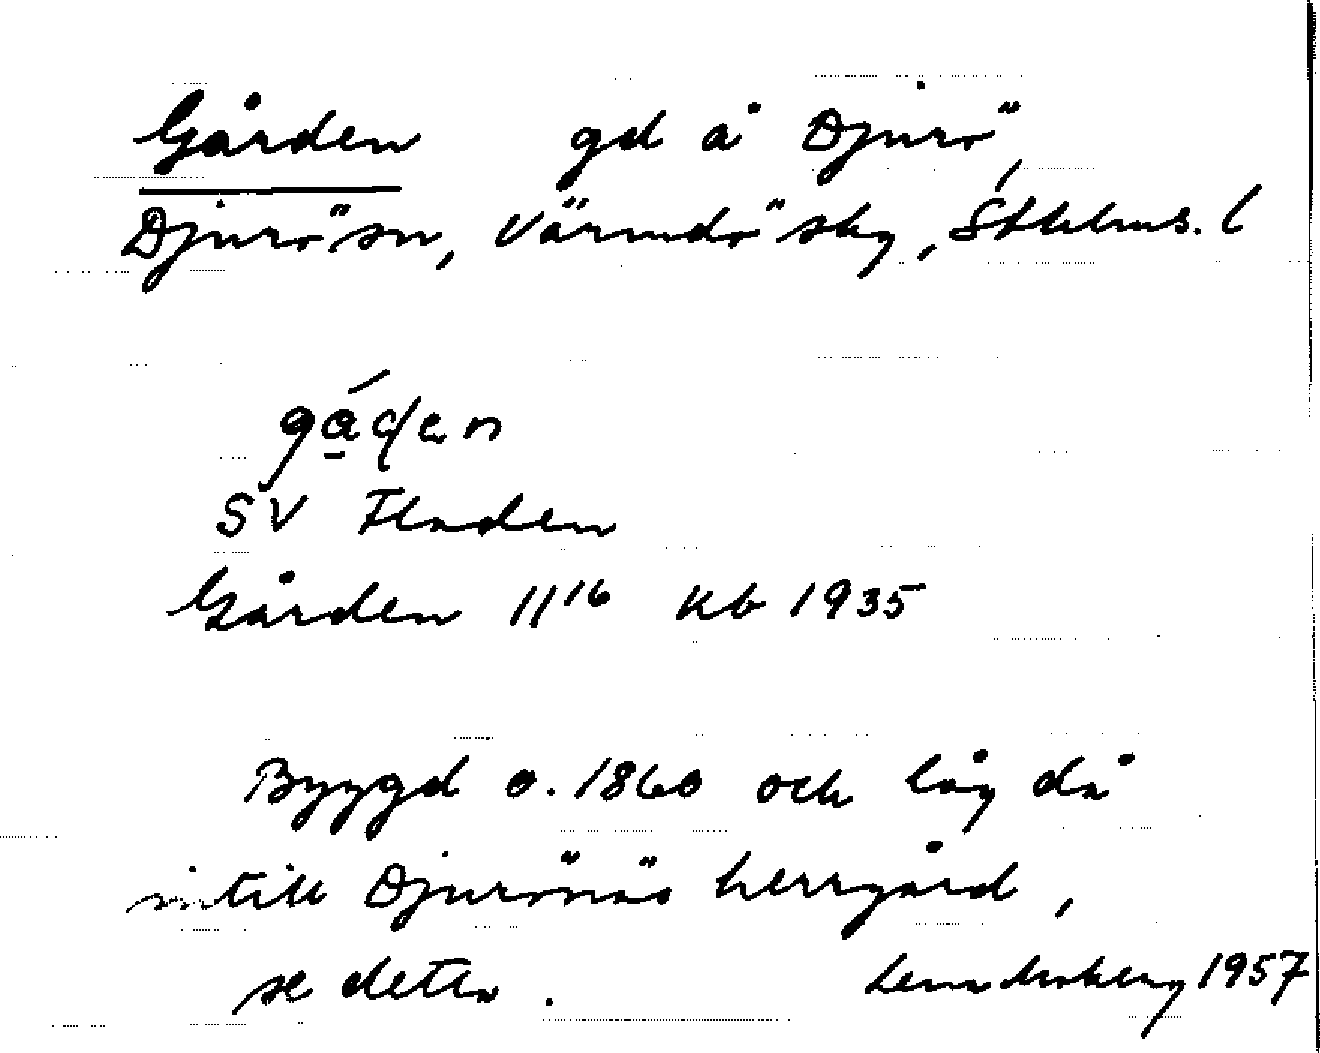 Gården gd å Djurö,
Djurö sn, Värmdö sky, Sthlms. l
gá̱den
SV Fladen
Gården 11¹⁶ kb 1935
Byggd o. 1860 och låg då
intill Djurönäs herrgård,
se detta. 1957